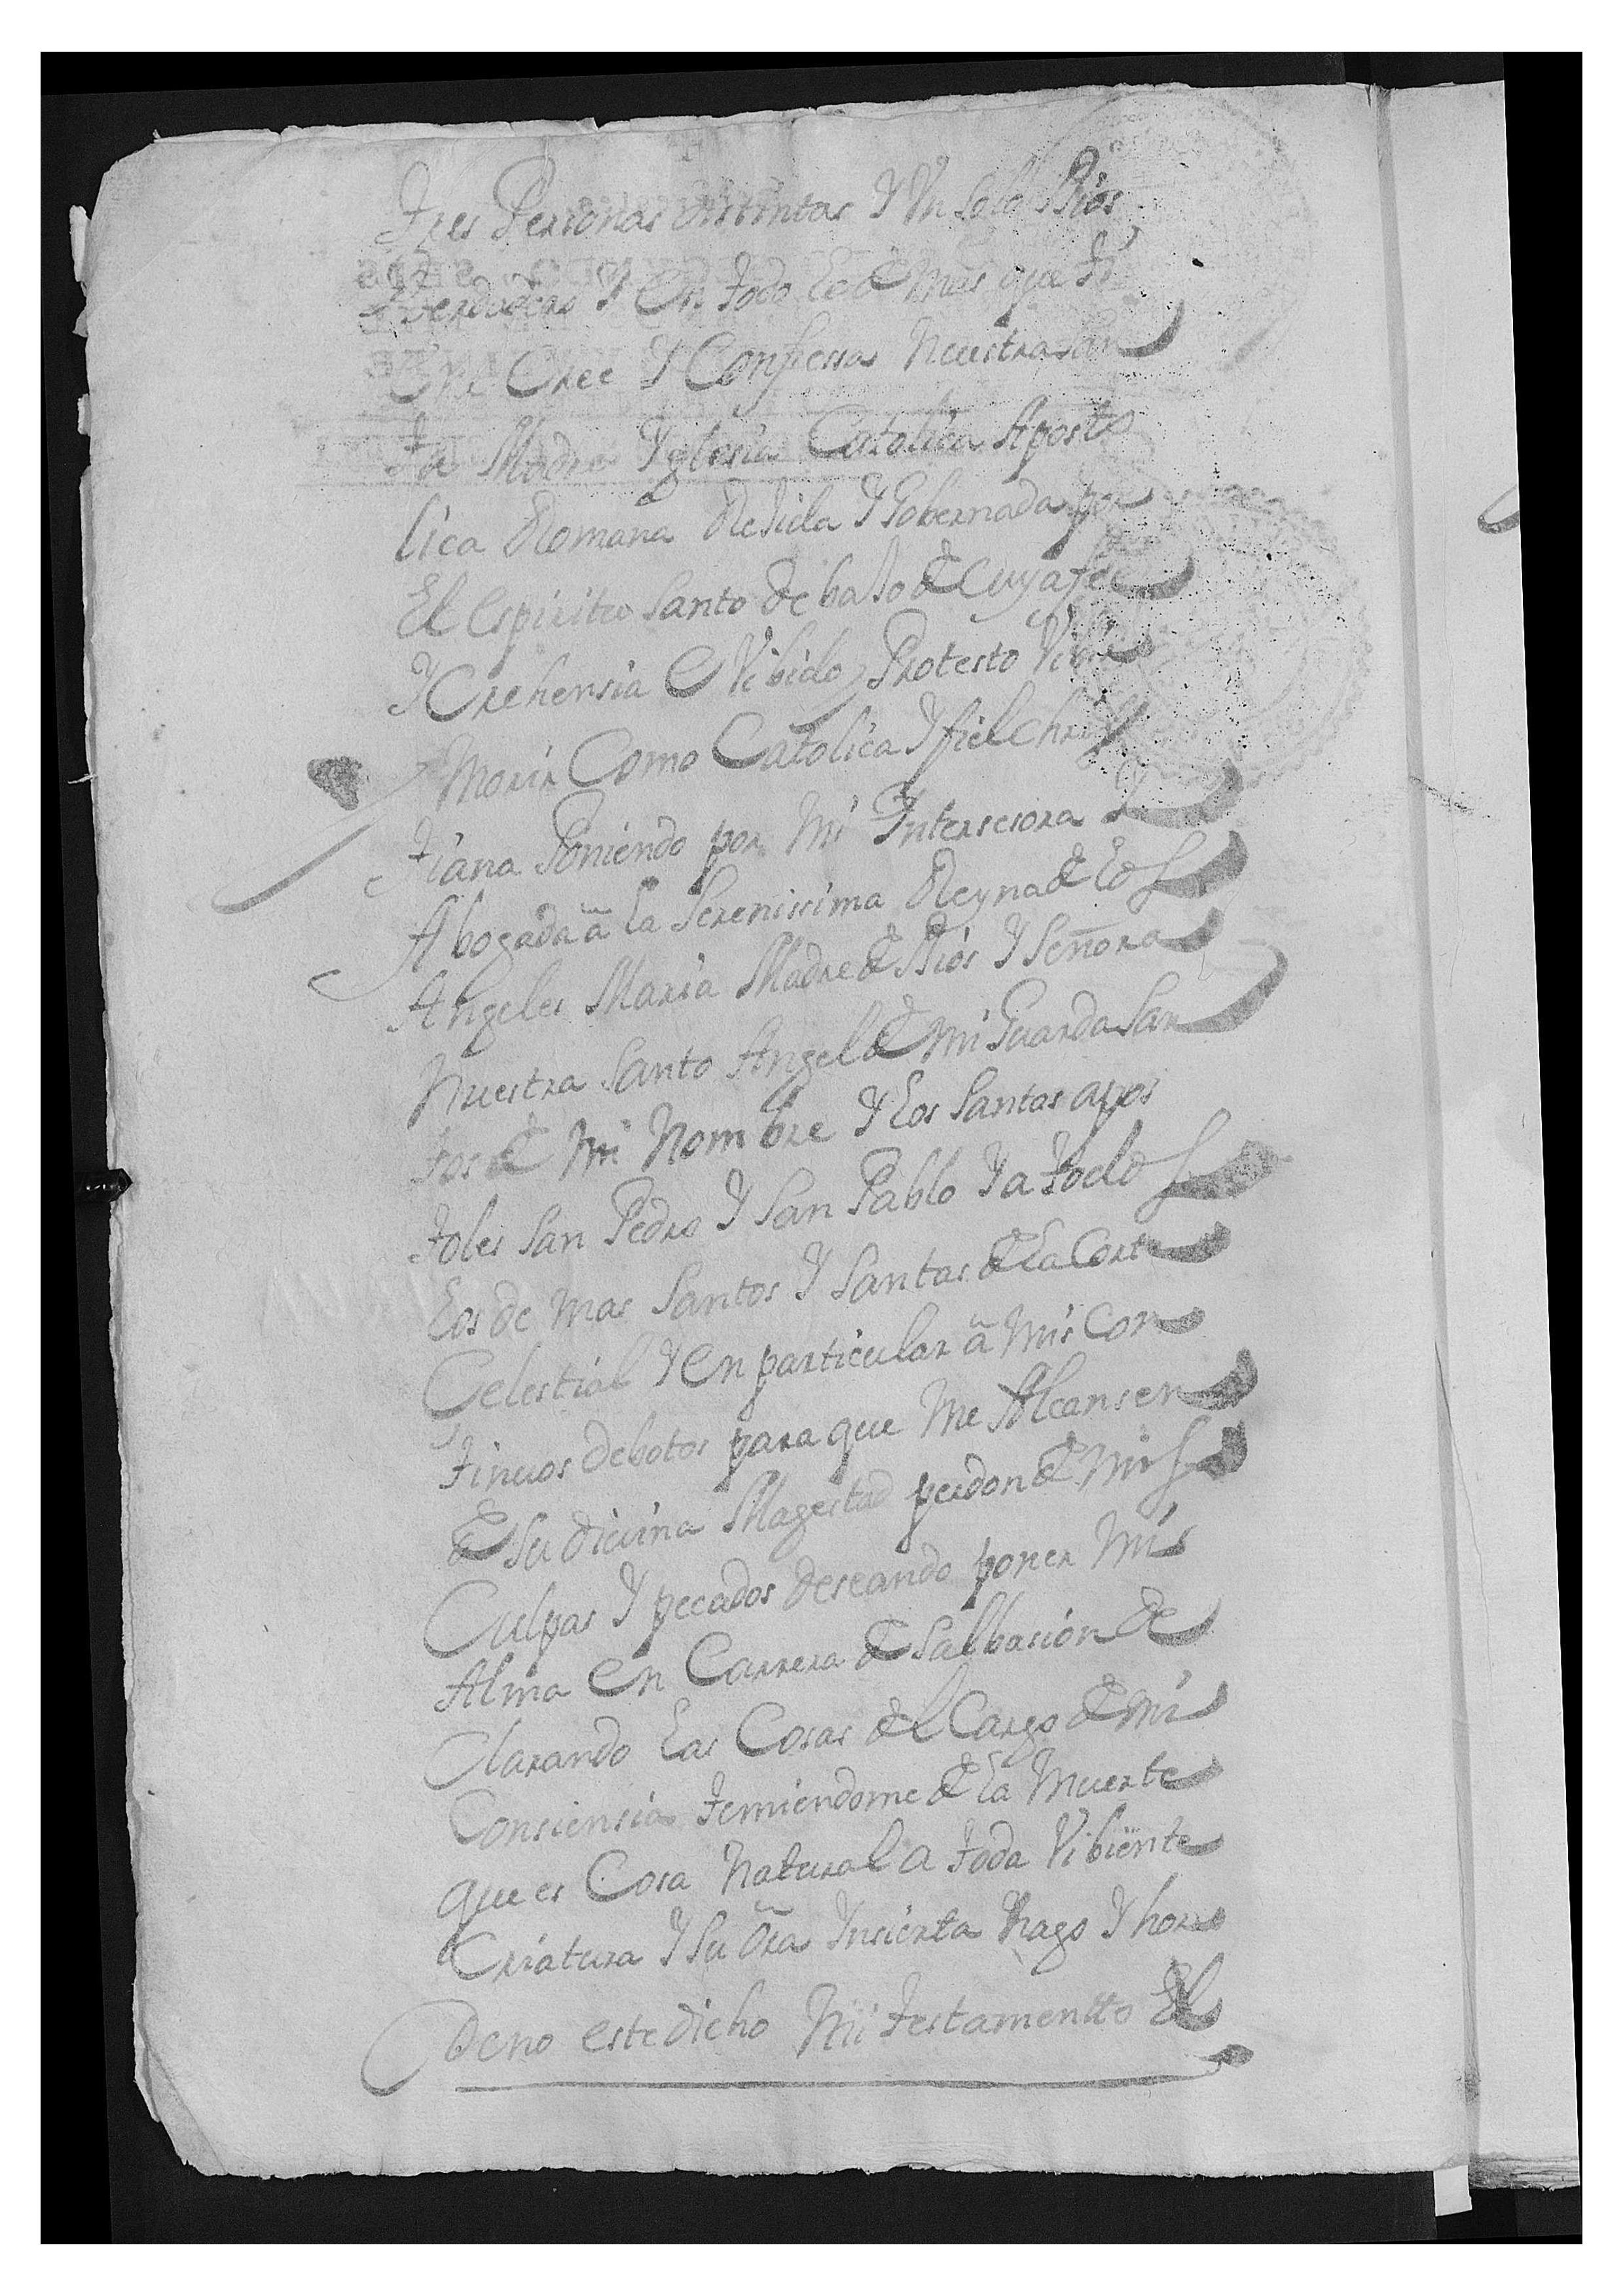 Tres Personas distintas Y Vn solo Dios
Verdadero Y En todo lo de mas que ti
ene Cree Y Confiessa Nuestra San
ta Madre Yglesia Catolica Aposto
lica Romana Rejida Y Gobernada por
El espiritu santo de bajo de Cuya fee
Y Crehensia e Vibido Protesto Vibir
Y Morir Como Catolica Y fiel chris
tiana Poniendo por Mi Yntersesora Y
Abogada â la Serenissima Reyna de los
Angeles Maria Madre de Dios Y Señora
Nuestra santo Angel de mi Guarda San
tos de mi Nombre Y los santos apos
toles san Pedro Y san Pablo Y a todos
los de mas santos Y santas de la Corte
Celestial Y en particular â mis Con
tinuos debotos para que me Alcansen
de su divina Magestad perdon de mis
Culpas Y pecados deseando poner mi
Alma en Carrera de salbasion de
Clarando las Cosas del Cargo de mi
Consiensia temiendome de la Muerte
que es Cosa Natural a toda Vibiente
Criatura Y su Ora Ynsierta hago Y hor
deno este dicho Mi testamentto El